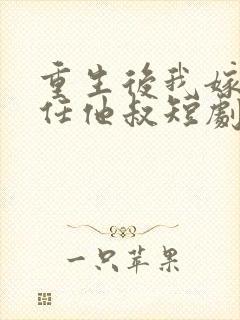 重生後我嫁
任他叔短劇
一只苹果